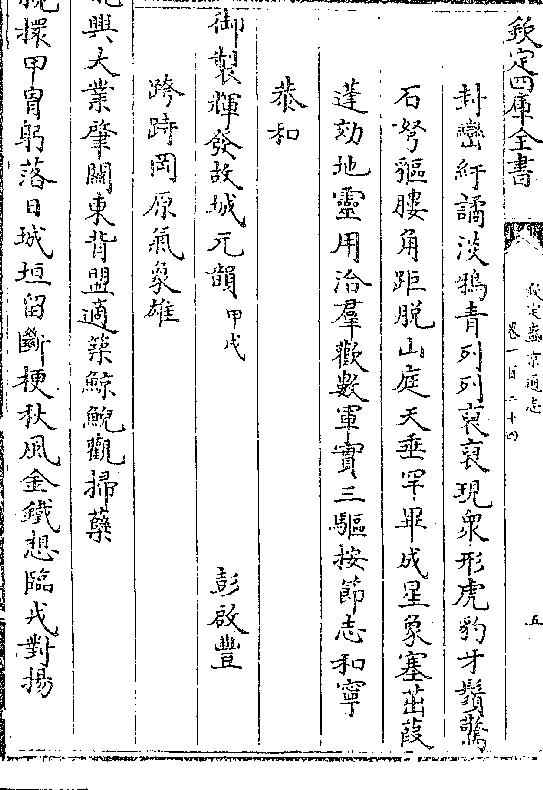 欽定四庫全書
欽定盛京通志
卷一百二十四
五
封巒紆譎淡鵁青列列裒裒現衆形虎豹牙鬚驚
石弩貙膢角距脱山庭天垂罕畢成星象塞茁葭
蓬効地靈用洽羣歡數軍實三驅按節志和寧
恭和
御製輝發故城元韻甲戌
彭啟豐
跨踦岡原氣象雄
興大業肇關東背盟適築鯨鯢觀掃蘖
擐甲胄躬落日城垣留斷梗秋風金鐵想臨戎對揚